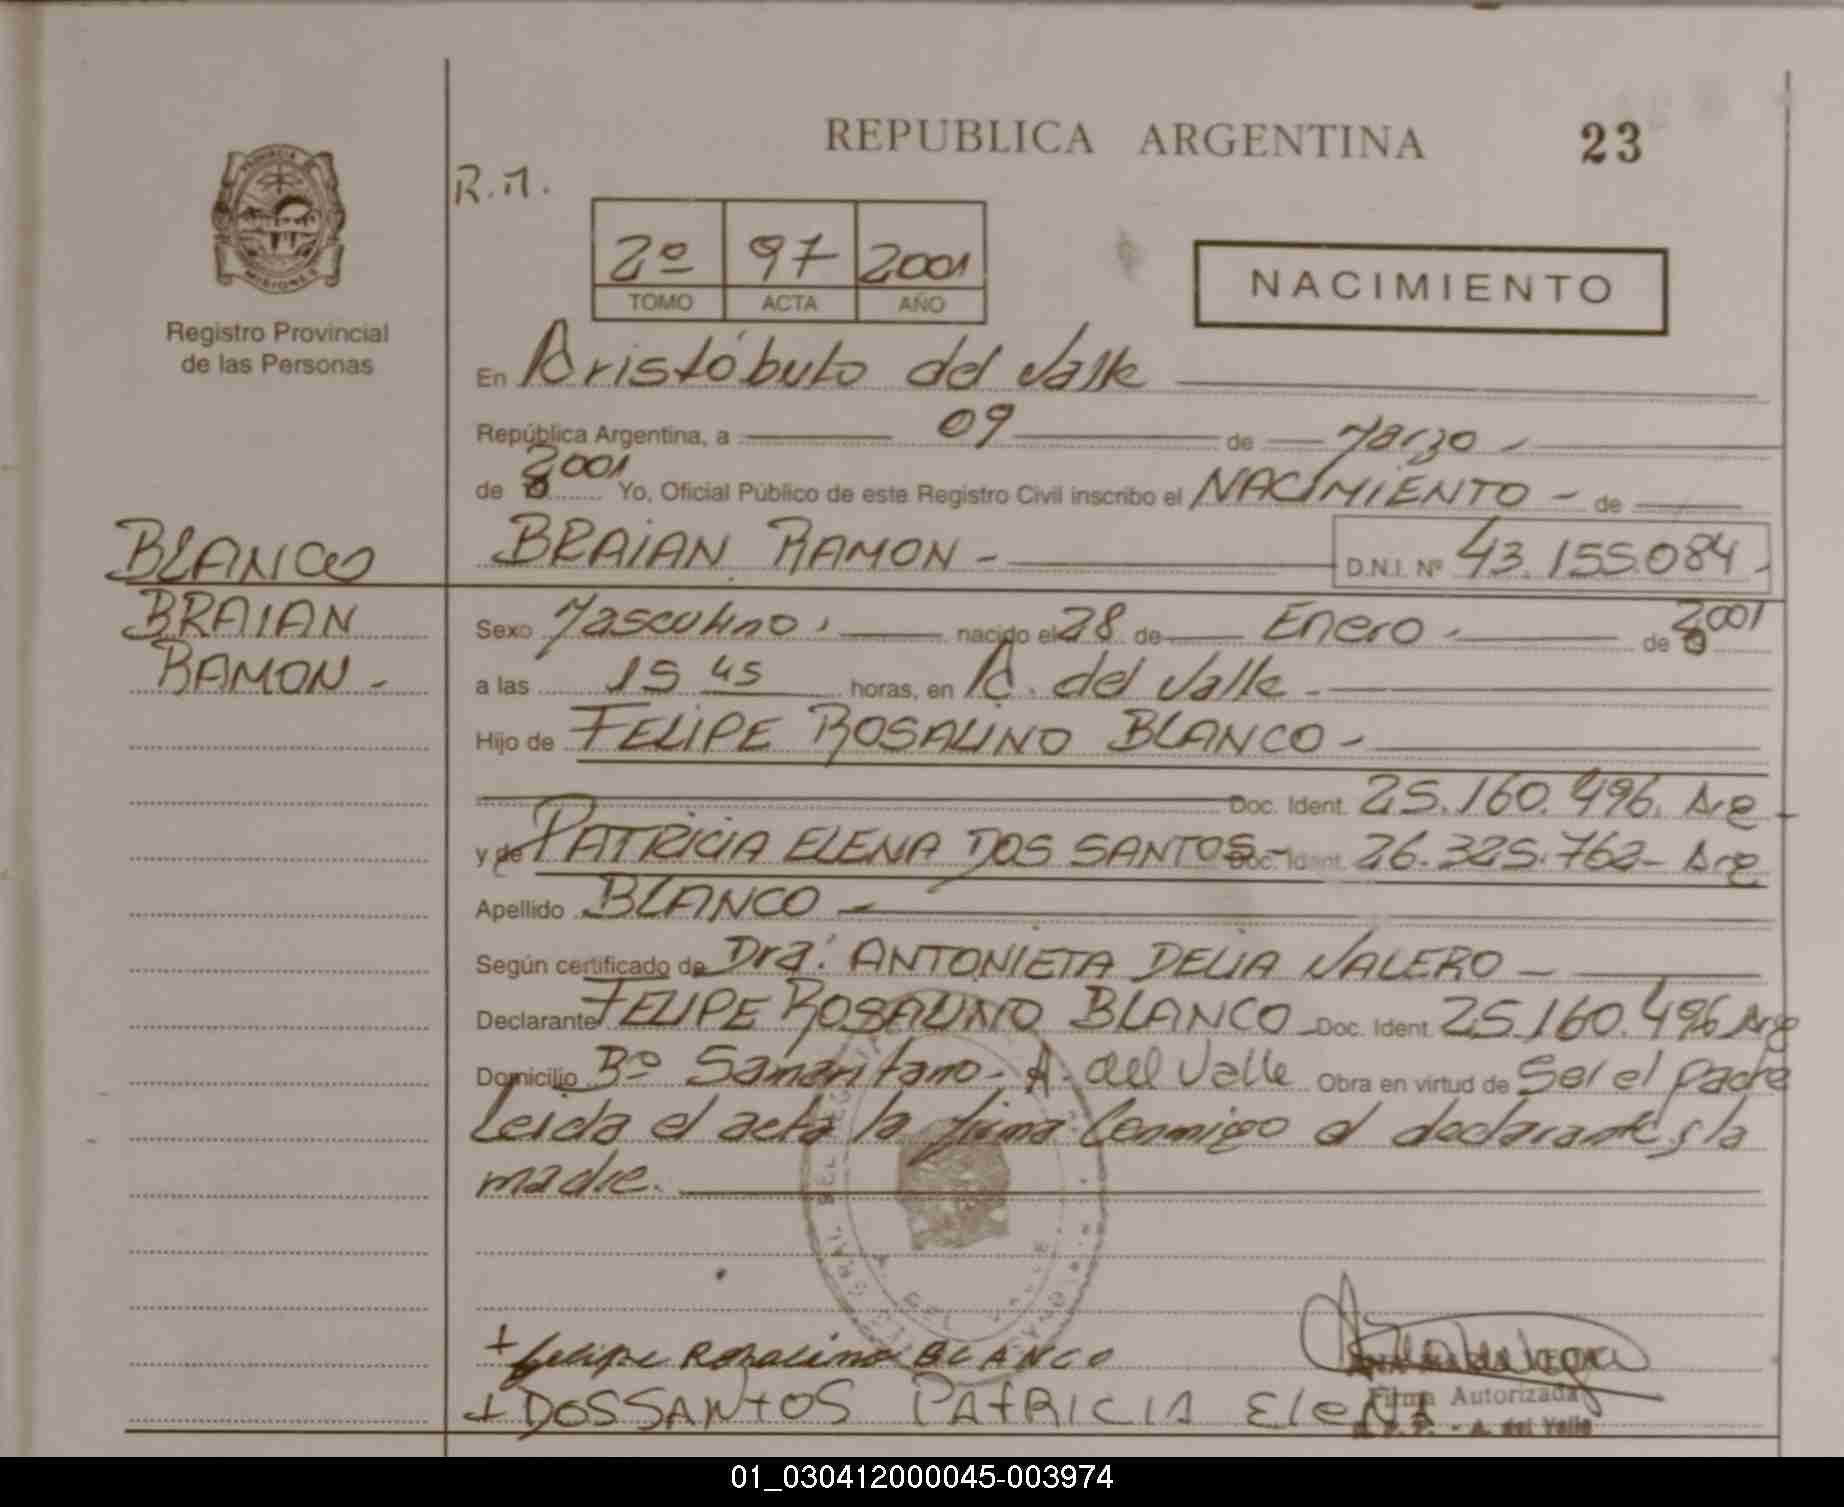 REPUBLICA ARGENTINA
23
PROVINCIA DE
MISIONES
Registro Provincial
de las Personas
R.M.
2º 97 2001
TOMO ACTA AÑO
NACIMIENTO
En Aristóbulo del Valle
República Argentina, a 09 de Marzo -
de 2001 Yo, Oficial Público de este Registro Civil inscribo el NACIMIENTO - de
BLANCO
BRAIAN
RAMON -
BRAIAN RAMON - D.N.I. Nº 43.155.084 -
Sexo Masculino. nacido el 28 de Enero - de 2001
a las 15 45 horas, en A. del Valle -
Hijo de FELIPE ROSALINO BLANCO -
Doc. Ident. 25.160.496. Arg -
y de PATRICIA ELENA DOS SANTOS - Doc. Ident. 26.325.762 - Arg
Apellido BLANCO -
Según certificado de Dra. ANTONIETA DELIA VALERO -
Declarante FELIPE ROSALINO BLANCO - Doc. Ident. 25.160.496 Arg
Domicilio Bº Samaritano - A. del Valle Obra en virtud de Ser el padre
Leida el acta la firma Conmigo el declarante y la
madre.
+ Felipe Rosalino BLANCO
+ DOSSANTOS PATRICIA Elena
Firma Autorizada
R. P. P. - A. del Valle
01_030412000045-003974